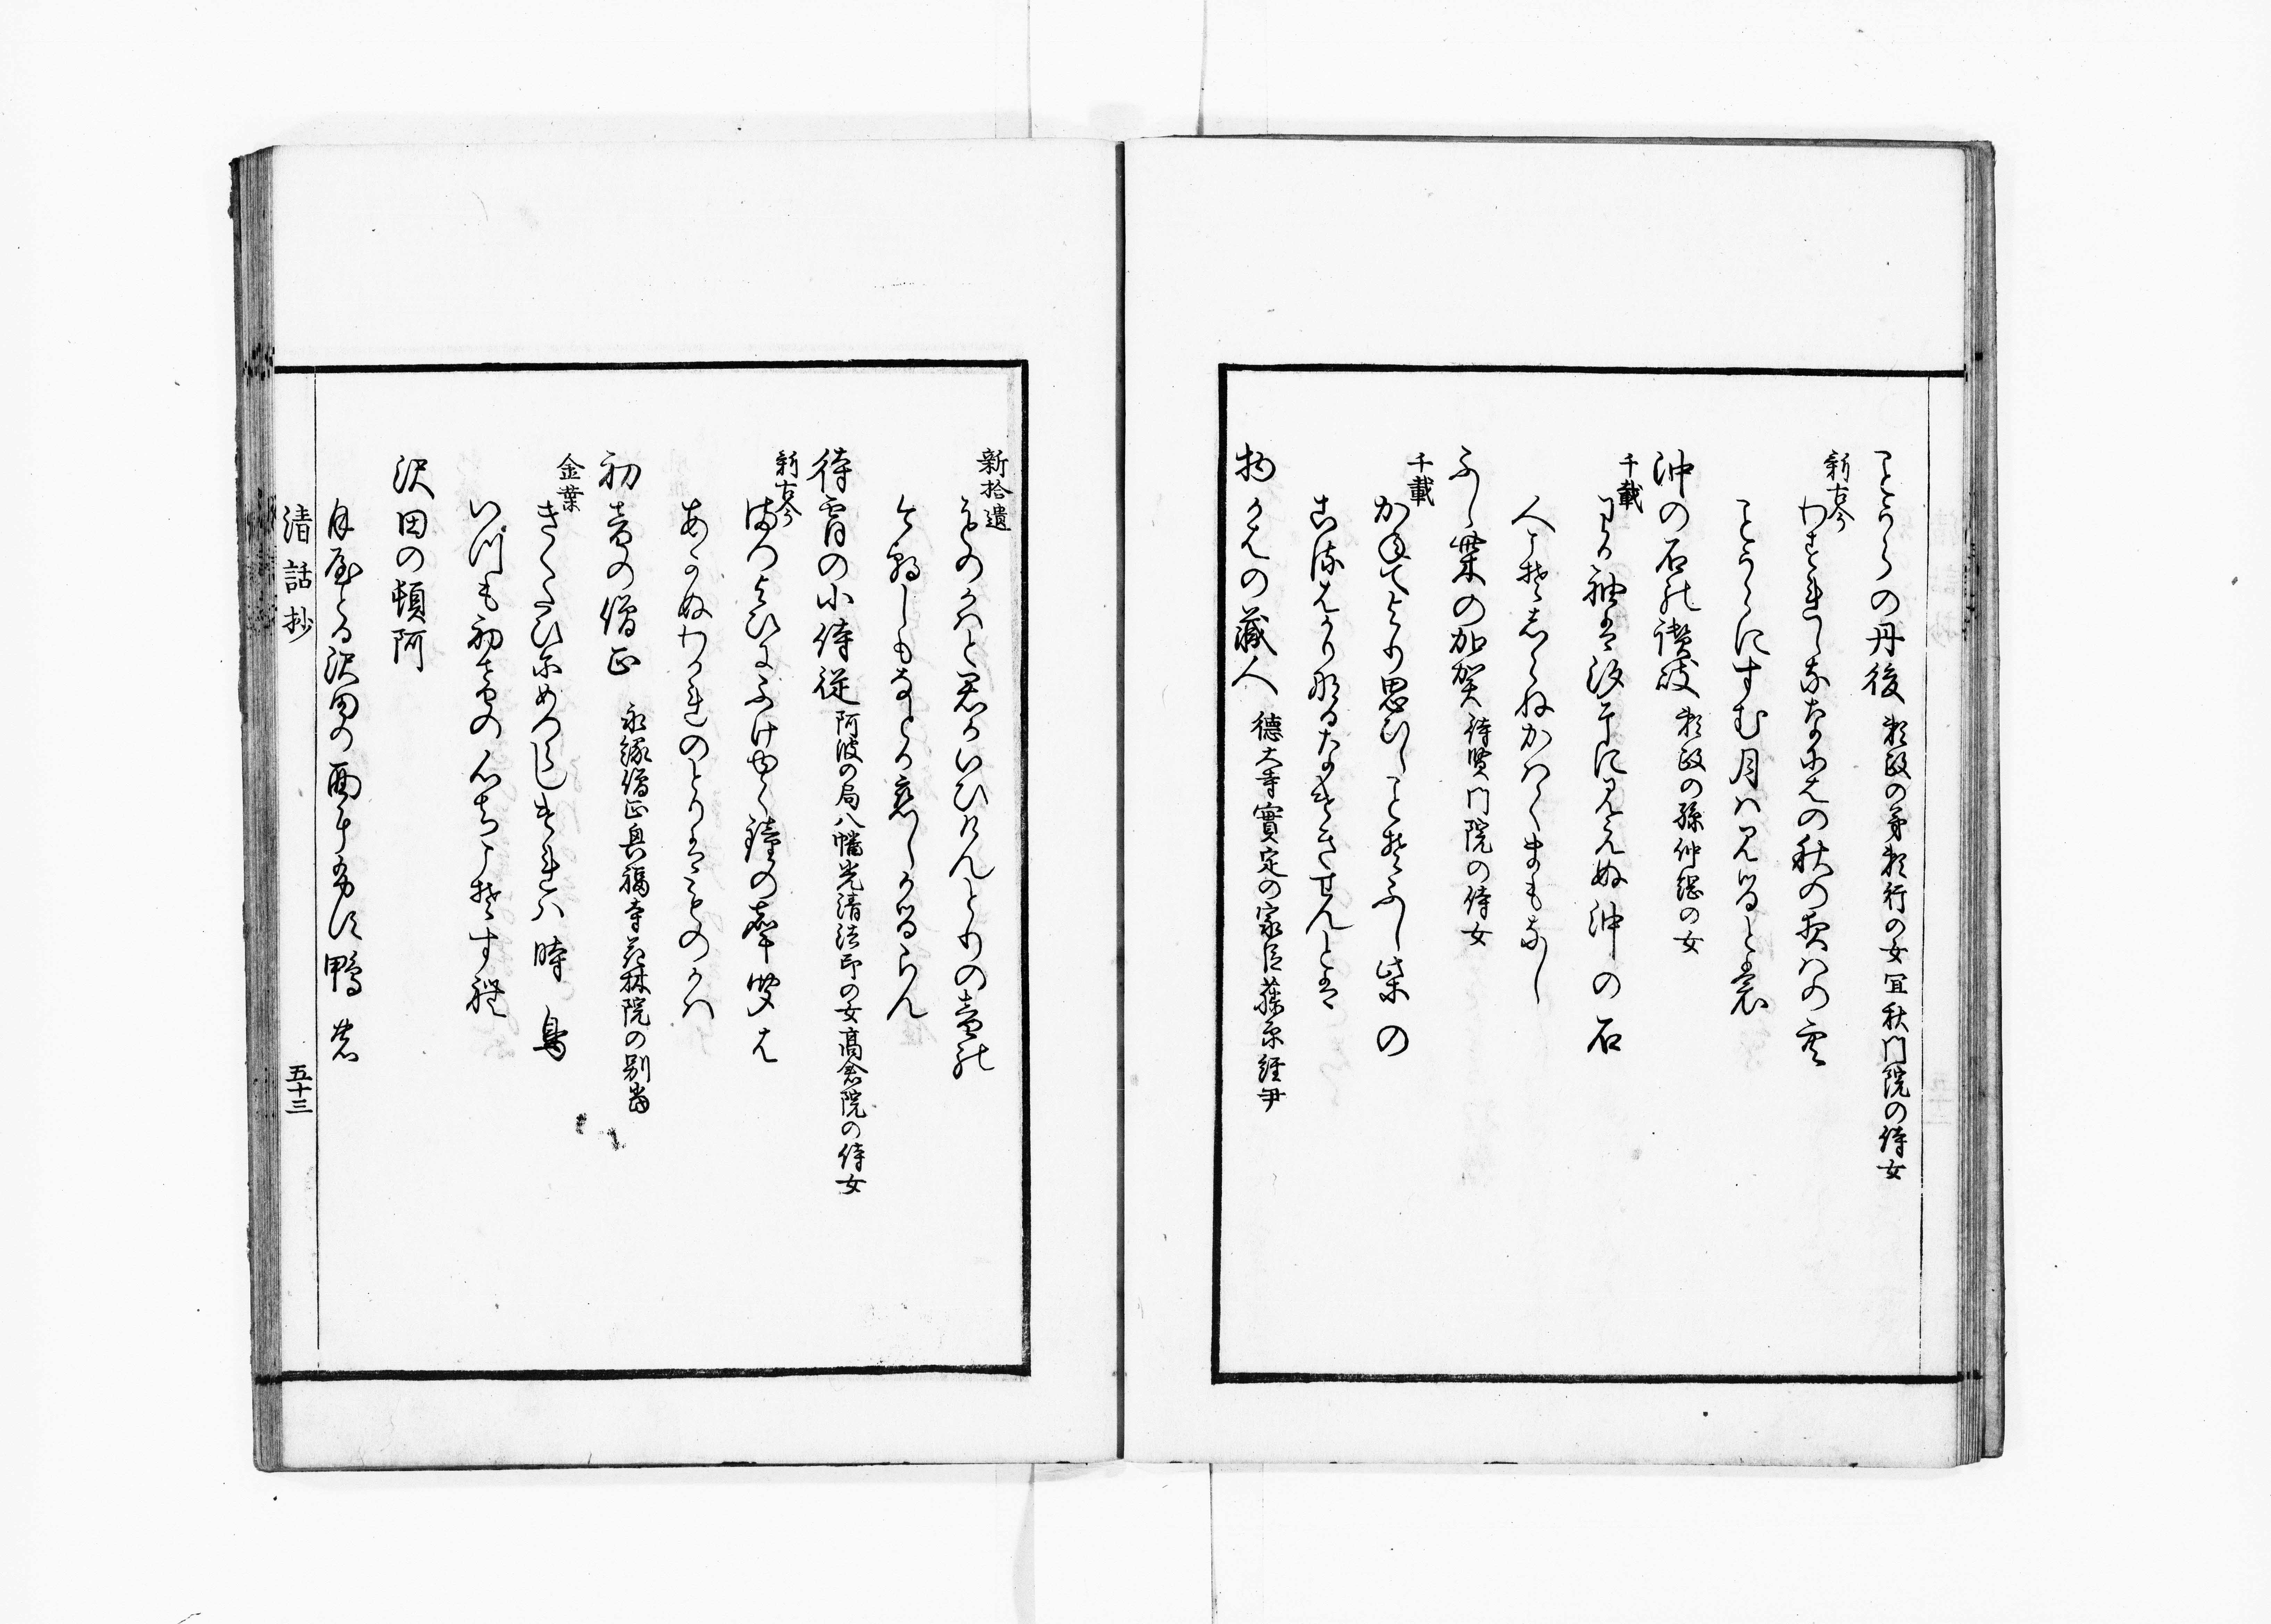 ことうらの丹後 頼政の弟頼行の女宜秋門院の侍女
新古今
わすれしななにはの秋の夜はの空
ことうらにすむ月はみるとも
沖の石の讃岐 頼政の孫仲綱の女
千載
わか袖は汐干にみえぬ沖の石
人こそしらねかはくまもなし
ふし柴の加賀 待賢門院の侍女
千載
かねてより思ひしことそふし柴の
こるはかりなるなけきせんとは
物かはの蔵人 徳大寺實定の家臣藤原経尹
新拾遺
ものかはと君かいひけんとりの音の
今朝しもなとか恋しかるらん
待宵の小侍従 阿波の局八幡光清法印の女高倉院の侍女
新古今
待つよひにふけゆく鐘の聲聞は
あかぬわかれのとりはものかは
初音の僧正 永縁僧正興福寺花林院の別當
金葉
きくたひにめつらしけれハ時鳥
いつも初音の心ちこそすれ
沢田の頓阿
月屋とる沢田の面にふす鴫の
清話抄
五十三